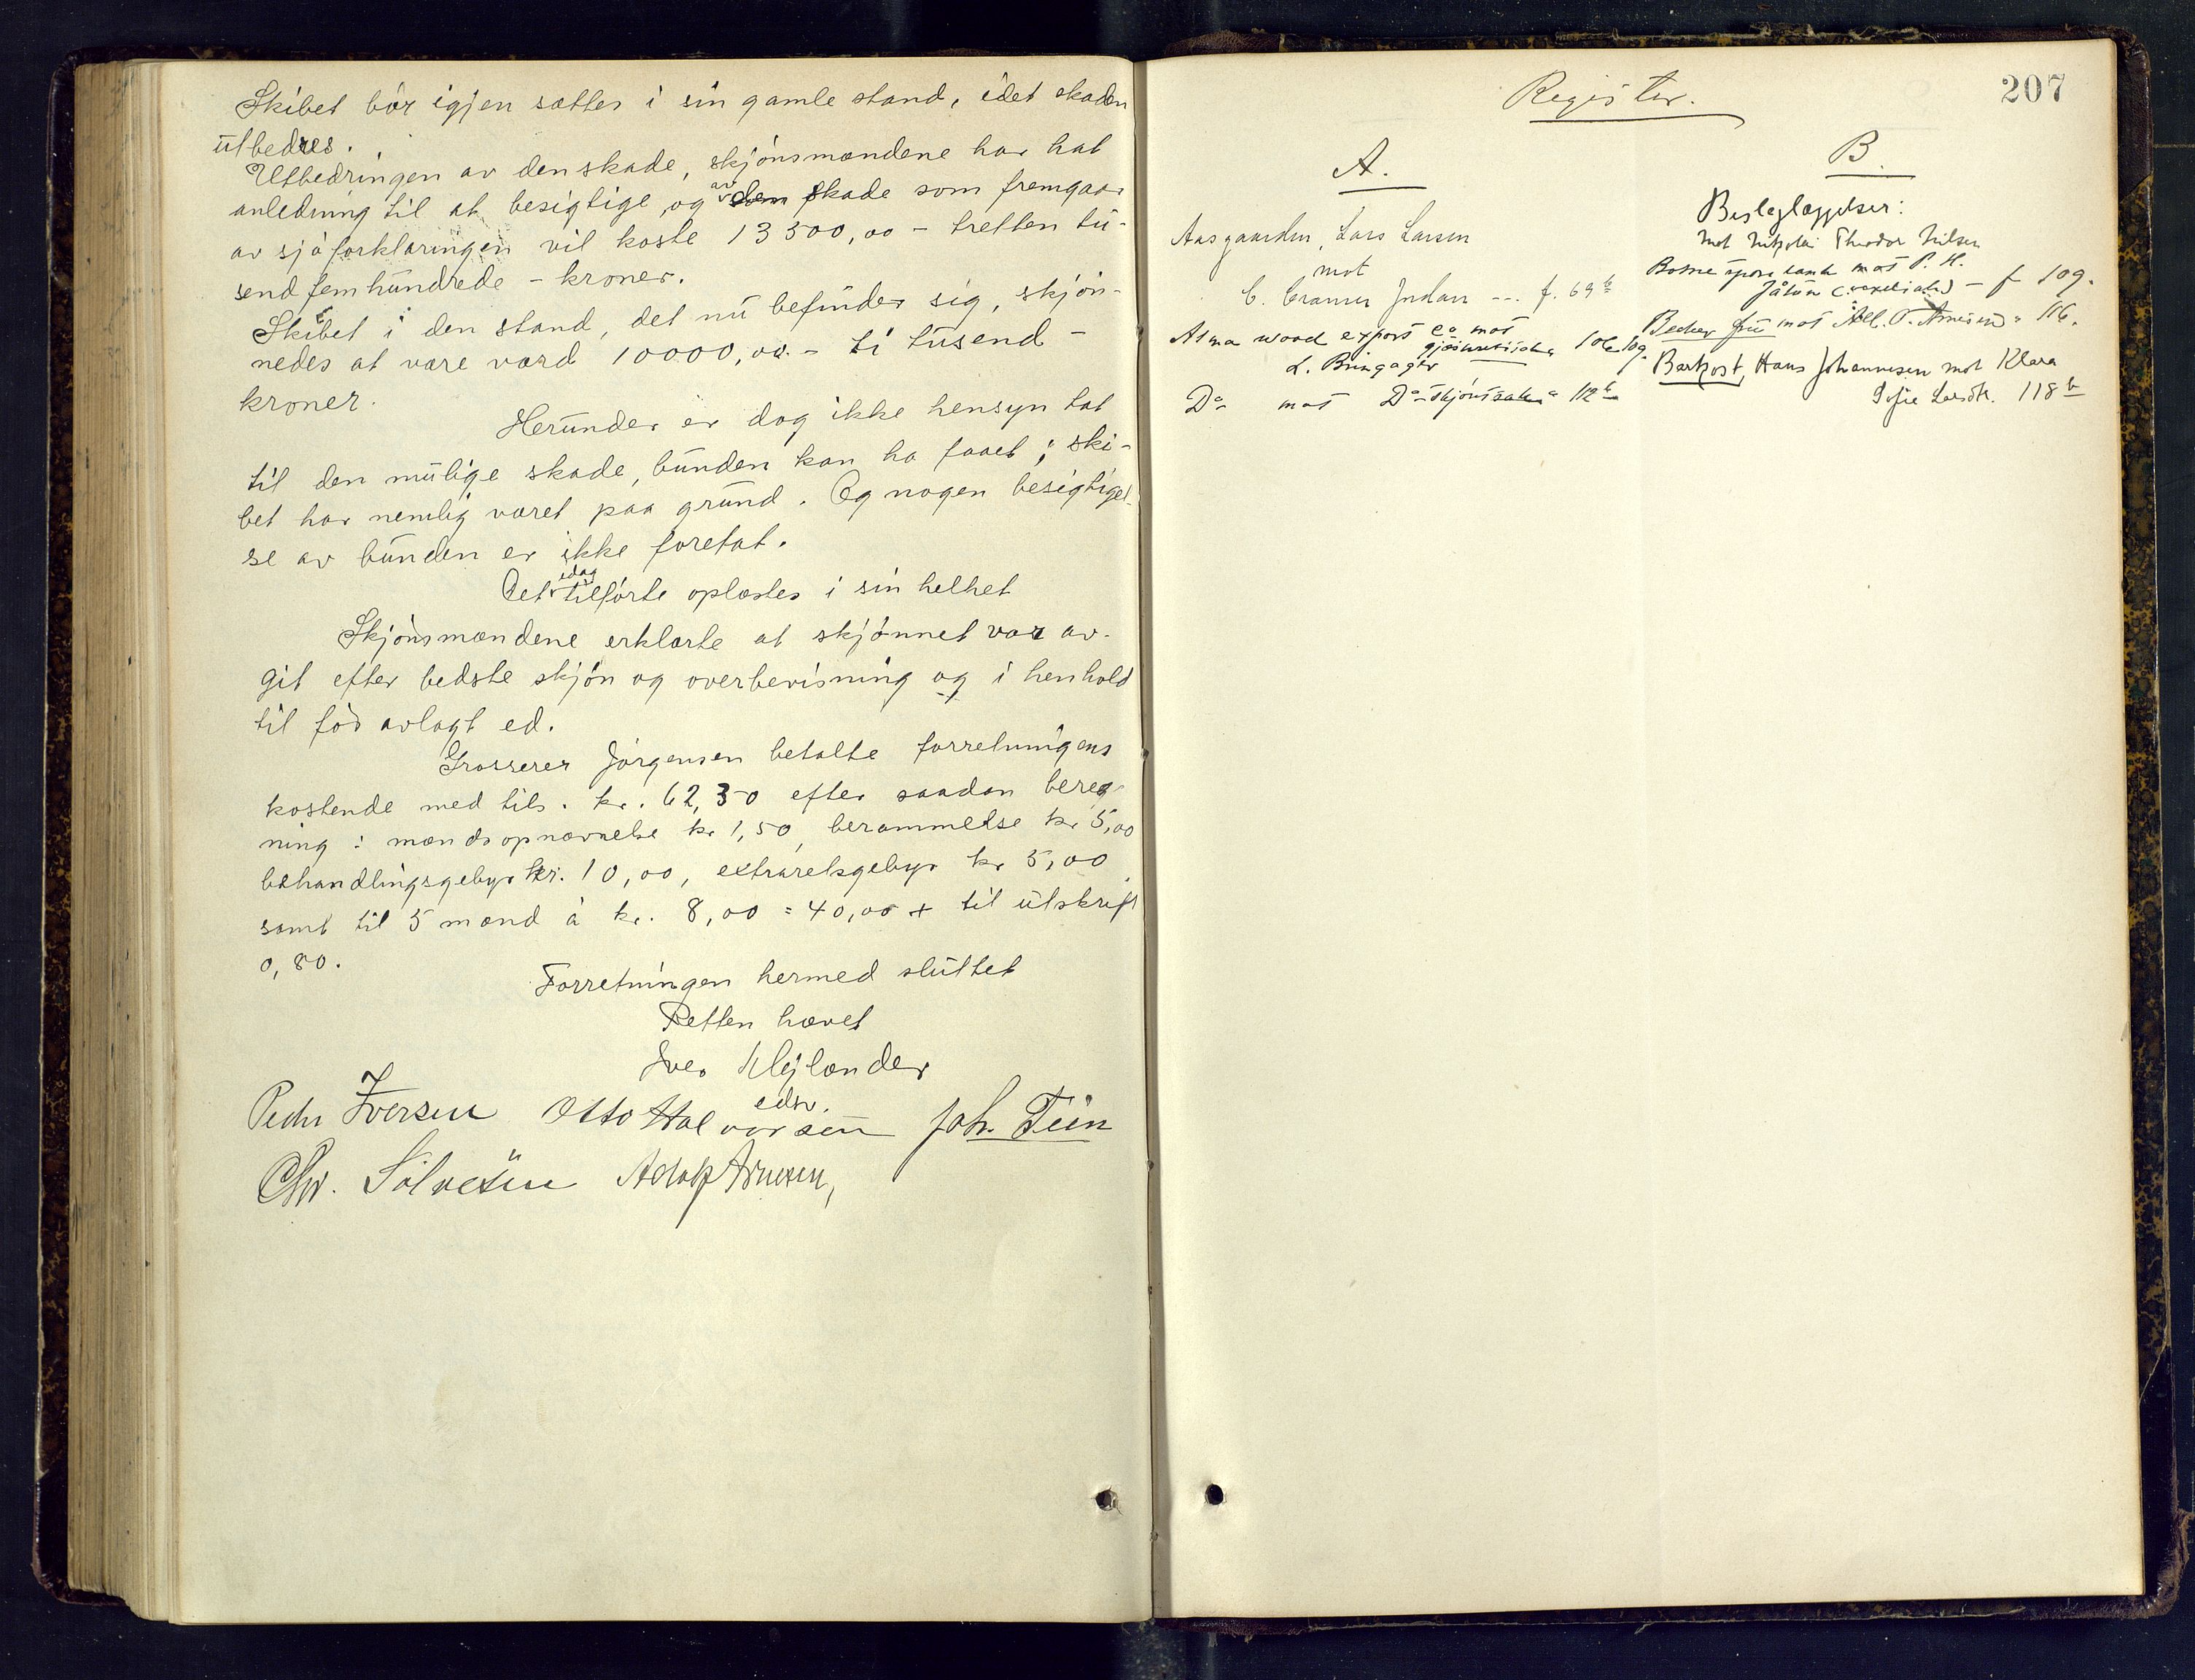 Skibet bör igjen sættes i sin gamle stand, idet skaden
utbedres.
Utbedringen av den skade, skjönsmændene har hat
anledning til at besigtige, og av den skade som fremgaar
av sjöforklaringen vil koste 13500,00 - tretten tu-
send fem hundrede - kroner.
Skibet i den stand, det nu befinder sig, skjön-
nedes at være værd 10000,00. - ti tusend -
kroner.
Herunder er dog ikke hensyn tat
til den mulige skade, bunden kan ha faaet; ski-
bet har nemlig været paa grund. Og nogen besigtigel-
se av bunden er ikke foretat.
Det idag tilförte oplæstes i sin helhet
Skjönsmændene erklærte at skjönnet var av-
git efter bedste skjön og overbevisning og i henhold
til för avlagt ed.
Grosserer Jörgensen betalte forretningens
kostende med tils. kr. 62,30 efter saadan bereg-
ning: mændsopnævnelse kr 1,50, berammelse kr 5,00
behandlingsgebyr kr. 10,00, extraretsgebyr kr 5,00
samt til 5 mænd à kr. 8,00 = 40,00 + til utskrift
0,80.
Forretningen hermed sluttet
Retten hævet
Iver Hejlænder
edsv.
Peder Iversen Otto Halvorsen Joh. Tein
Chr. Sölvesen Aslak Arnesen,
207
Register.
A.
Aasgaarden, Lars Larsen
mot
C. Cramer Jordan --- f. 69 b
Alma wood export Co mot
L. Bringager 106, 109
Do mot Do - Skjönssak " 112 b
B.
Beslaglæggelser:
Mot Nikolai Theodor Nilsen
Botne sparebank mot P. H.
Jåtun - f 109.
Becker fru mot Alb. T. Arnesen " 116.
Barkost, Hans Johannesen mot Klara
Sofie Larsdtr. 118 b